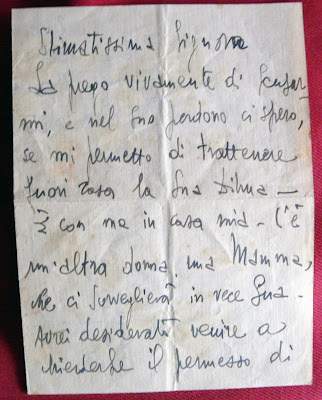 Stimatissima Signora
La prego vivamente di scusar
mi, e nel Suo perdono ci spero,
se mi permetto di trattenere
fuori casa la Sua Dilma —
È con me in casa mia - (c'è
un'altra donna, una Mamma,
che ci sorveglierà in vece Sua -
Avrei desiderato venire a
chiederLe il permesso di